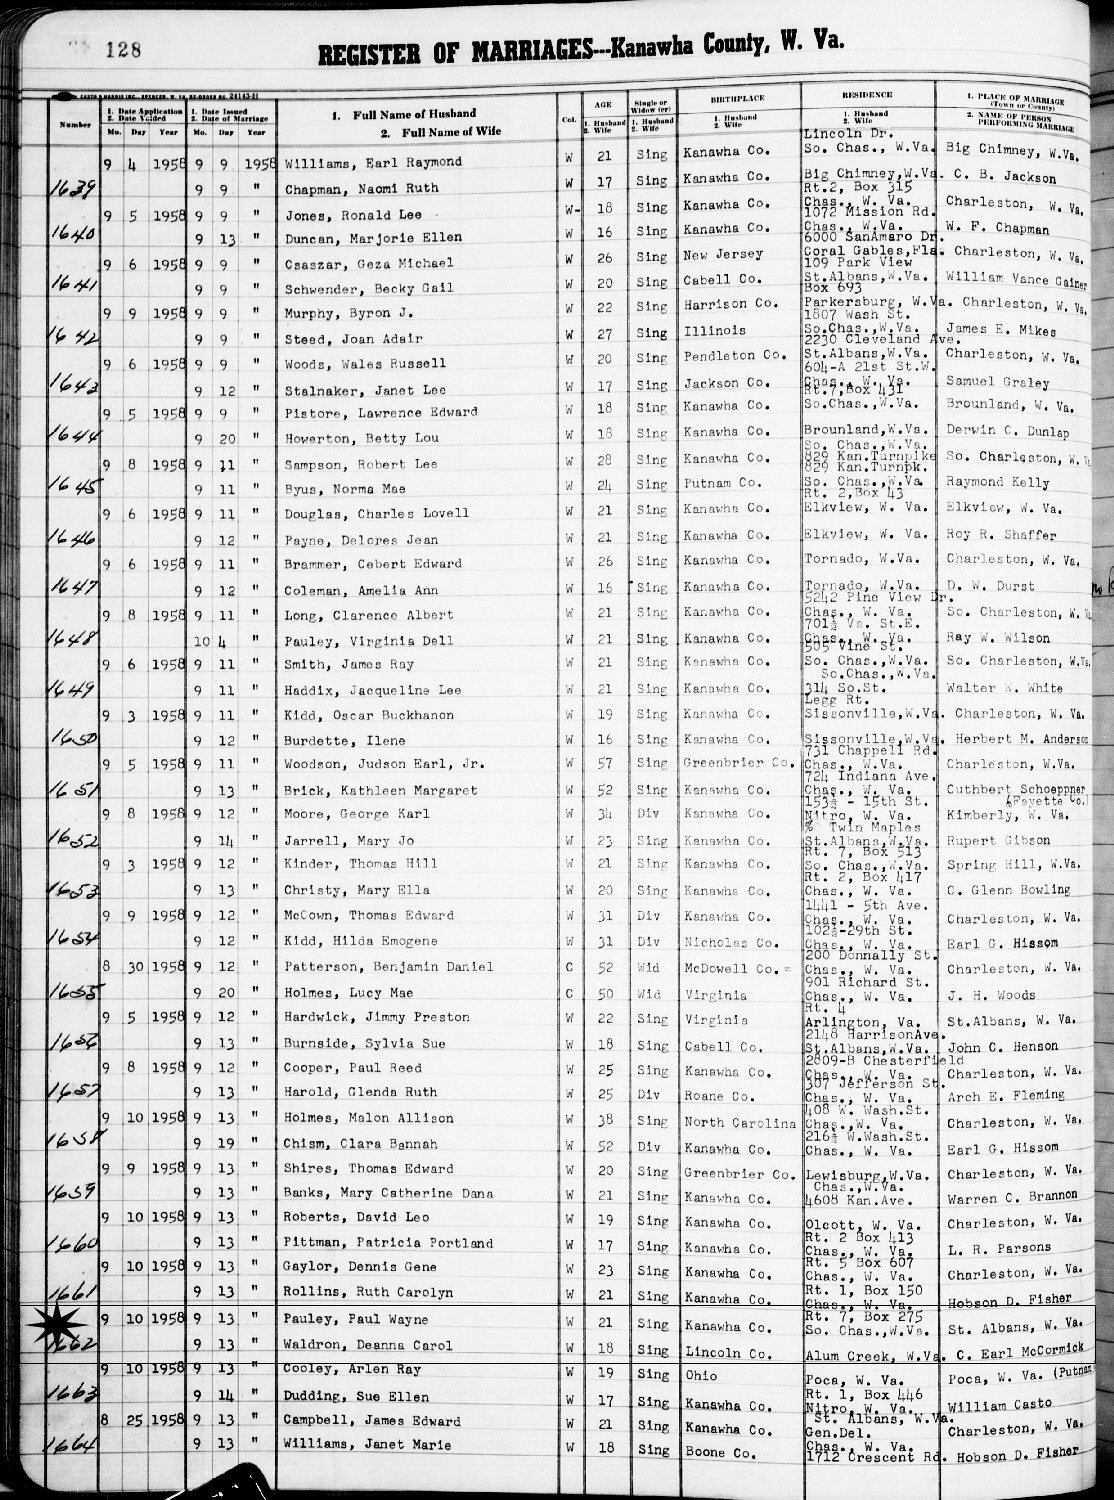 128
REGISTER OF MARRIAGES---Kanawha County, W. Va.
CASTO & HARRIS INC., SPENCER, W. VA. RE-ORDER NO. 24143-H
Number
1. Date Application 2. Date Voided
Mo. Day Year
1. Date Issued 2. Date of Marriage
Mo. Day Year
1. Full Name of Husband
2. Full Name of Wife
Col.
AGE
1. Husband 2. Wife
Single or Widow (er)
1. Husband 2. Wife
BIRTHPLACE
1. Husband 2. Wife
RESIDENCE
1. Husband 2. Wife
1. PLACE OF MARRIAGE (Town or County)
2. NAME OF PERSON PERFORMING MARRIAGE
Lincoln Dr.
9 4 1958 9 9 1958 Williams, Earl Raymond W 21 Sing Kanawha Co. So. Chas., W.Va. Big Chimney, W.Va.
1639 9 9 " Chapman, Naomi Ruth W 17 Sing Kanawha Co. Big Chimney,W.Va. C. B. Jackson
Rt.2, Box 315
9 5 1958 9 9 " Jones, Ronald Lee W- 18 Sing Kanawha Co. Chas., W. Va. Charleston, W. Va.
1072 Mission Rd.
1640 9 13 " Duncan, Marjorie Ellen W 16 Sing Kanawha Co. Chas., W.Va. W. F. Chapman
6000 SanAmaro Dr.
9 6 1958 9 9 " Csaszar, Geza Michael W 26 Sing New Jersey Coral Gables,Fla. Charleston, W. Va.
109 Park View
1641 9 9 " Schwender, Becky Gail W 20 Sing Cabell Co. St.Albans,W.Va. William Vance Gainer
Box 693
9 9 1958 9 9 " Murphy, Byron J. W 22 Sing Harrison Co. Parkersburg, W.Va. Charleston, W. Va.
1807 Wash St.
1642 9 9 " Steed, Joan Adair W 27 Sing Illinois So.Chas.,W.Va. James E. Mikes
2230 Cleveland Ave.
9 6 1958 9 9 " Woods, Wales Russell W 20 Sing Pendleton Co. St.Albans,W.Va. Charleston, W. Va.
604-A 21st St.W.
1643 9 12 " Stalnaker, Janet Lee W 17 Sing Jackson Co. Chas., W. Va. Samuel Graley
Rt.7,Box 431
9 5 1958 9 9 " Pistore, Lawrence Edward W 18 Sing Kanawha Co. So.Chas.,W.Va. Brounland, W. Va.
1644 9 20 " Howerton, Betty Lou W 18 Sing Kanawha Co. Brounland,W.Va. Derwin C. Dunlap
So. Chas.,W.Va.
9 8 1958 9 11 " Sampson, Robert Lee W 28 Sing Kanawha Co. 829 Kan.Turnpike So. Charleston, W.
829 Kan.Turnpk.
1645 9 11 " Byus, Norma Mae W 24 Sing Putnam Co. So. Chas.,W.Va. Raymond Kelly
Rt. 2,Box 43
9 6 1958 9 11 " Douglas, Charles Lovell W 21 Sing Kanawha Co. Elkview, W. Va. Elkview, W. Va.
1646 9 12 " Payne, Delores Jean W 21 Sing Kanawha Co. Elkview, W. Va. Roy R. Shaffer
9 6 1958 9 11 " Brammer, Cebert Edward W 26 Sing Kanawha Co. Tornado, W.Va. Charleston, W. Va.
1647 9 12 " Coleman, Amelia Ann W 16 Sing Kanawha Co. Tornado, W.Va. D. W. Durst
5242 Pine View Dr.
9 8 1958 9 11 " Long, Clarence Albert W 21 Sing Kanawha Co. Chas., W. Va. So. Charleston, W.
701½ Va. St.E.
1648 10 4 " Pauley, Virginia Dell W 21 Sing Kanawha Co. Chas., W. Va. Ray W. Wilson
505 Vine St.
9 6 1958 9 11 " Smith, James Ray W 21 Sing Kanawha Co. So. Chas.,W.Va. So. Charleston, W.Va.
So.Chas.,W.Va.
1649 9 11 " Haddix, Jacqueline Lee W 21 Sing Kanawha Co. 314 So.St. Walter W. White
Legg Rt.
9 3 1958 9 11 " Kidd, Oscar Buckhanon W 19 Sing Kanawha Co. Sissonville,W.Va. Charleston, W. Va.
1650 9 12 " Burdette, Ilene W 16 Sing Kanawha Co. Sissonville,W.Va. Herbert M. Anderson
731 Chappell Rd.
9 5 1958 9 11 " Woodson, Judson Earl, Jr. W 57 Sing Greenbrier Co. Chas., W.Va. Charleston, W.Va.
724 Indiana Ave.
1651 9 13 " Brick, Kathleen Margaret W 52 Sing Kanawha Co. Chas., W. Va. Cuthbert Schoeppner
153½ - 15th St. (Fayette Co.)
9 8 1958 9 12 " Moore, George Karl W 34 Div Kanawha Co. Nitro, W. Va. Kimberly, W. Va.
% Twin Maples
1652 9 14 " Jarrell, Mary Jo W 23 Sing Kanawha Co. St.Albans,W.Va. Rupert Gibson
Rt. 7, Box 513
9 3 1958 9 12 " Kinder, Thomas Hill W 21 Sing Kanawha Co. So. Chas.,W.Va. Spring Hill, W.Va.
Rt. 2, Box 417
1653 9 13 " Christy, Mary Ella W 20 Sing Kanawha Co. Chas., W. Va. C. Glenn Bowling
1441 - 5th Ave.
9 9 1958 9 12 " McCown, Thomas Edward W 31 Div Kanawha Co. Chas., W. Va. Charleston, W. Va.
102½-29th St.
1654 9 12 " Kidd, Hilda Emogene W 31 Div Nicholas Co. Chas., W. Va. Earl G. Hissom
200 Donnally St.
8 30 1958 9 12 " Patterson, Benjamin Daniel C 52 Wid McDowell Co.= Chas., W. Va. Charleston, W. Va.
901 Richard St.
1655 9 20 " Holmes, Lucy Mae C 50 Wid Virginia Chas., W. Va. J. H. Woods
Rt. 4
9 5 1958 9 12 " Hardwick, Jimmy Preston W 22 Sing Virginia Arlington, Va. St.Albans, W. Va.
2148 HarrisonAve.
1656 9 13 " Burnside, Sylvia Sue W 18 Sing Cabell Co. St.Albans,W.Va. John C. Henson
2809-B Chesterfield
9 8 1958 9 12 " Cooper, Paul Reed W 25 Sing Kanawha Co. Chas., W. Va. Charleston, W. Va.
307 Jefferson St.
1657 9 13 " Harold, Glenda Ruth W 25 Div Roane Co. Chas., W. Va. Arch E. Fleming
408 W. Wash.St.
9 10 1958 9 13 " Holmes, Malon Allison W 38 Sing North Carolina Chas.,W. Va. Charleston, W. Va.
216½ W.Wash.St.
1658 9 19 " Chism, Clara Bannah W 52 Div Kanawha Co. Chas., W. Va. Earl G. Hissom
9 9 1958 9 13 " Shires, Thomas Edward W 20 Sing Greenbrier Co. Lewisburg,W.Va. Charleston, W. Va.
Chas.,W.Va.
1659 9 13 " Banks, Mary Catherine Dana W 21 Sing Kanawha Co. 4608 Kan.Ave. Warren C. Brannon
9 10 1958 9 13 " Roberts, David Leo W 19 Sing Kanawha Co. Olcott, W. Va. Charleston, W. Va.
Rt. 2 Box 413
1660 9 13 " Pittman, Patricia Portland W 17 Sing Kanawha Co. Chas., W. Va. L. R. Parsons
Rt. 5 Box 607
9 10 1958 9 13 " Gaylor, Dennis Gene W 23 Sing Kanawha Co. Chas., W. Va. Charleston, W. Va.
Rt. 1, Box 150
1661 9 13 " Rollins, Ruth Carolyn W 21 Sing Kanawha Co. Chas., W. Va. Hobson D. Fisher
Rt. 7, Box 275
9 10 1958 9 13 " Pauley, Paul Wayne W 21 Sing Kanawha Co. So. Chas.,W.Va. St. Albans, W. Va.
1662 9 13 " Waldron, Deanna Carol W 18 Sing Lincoln Co. Alum Creek, W.Va. C. Earl McCormick
9 10 1958 9 13 " Cooley, Arlen Ray W 19 Sing Ohio Poca, W. Va. Poca, W. Va. (Putnam
Rt. 1, Box 446
1663 9 14 " Dudding, Sue Ellen W 17 Sing Kanawha Co. Nitro, W. Va. William Casto
St. Albans, W.Va.
8 25 1958 9 13 " Campbell, James Edward W 21 Sing Kanawha Co. Gen.Del. Charleston, W. Va.
Chas., W. Va.
1664 9 13 " Williams, Janet Marie W 18 Sing Boone Co. 1712 Crescent Rd. Hobson D. Fisher